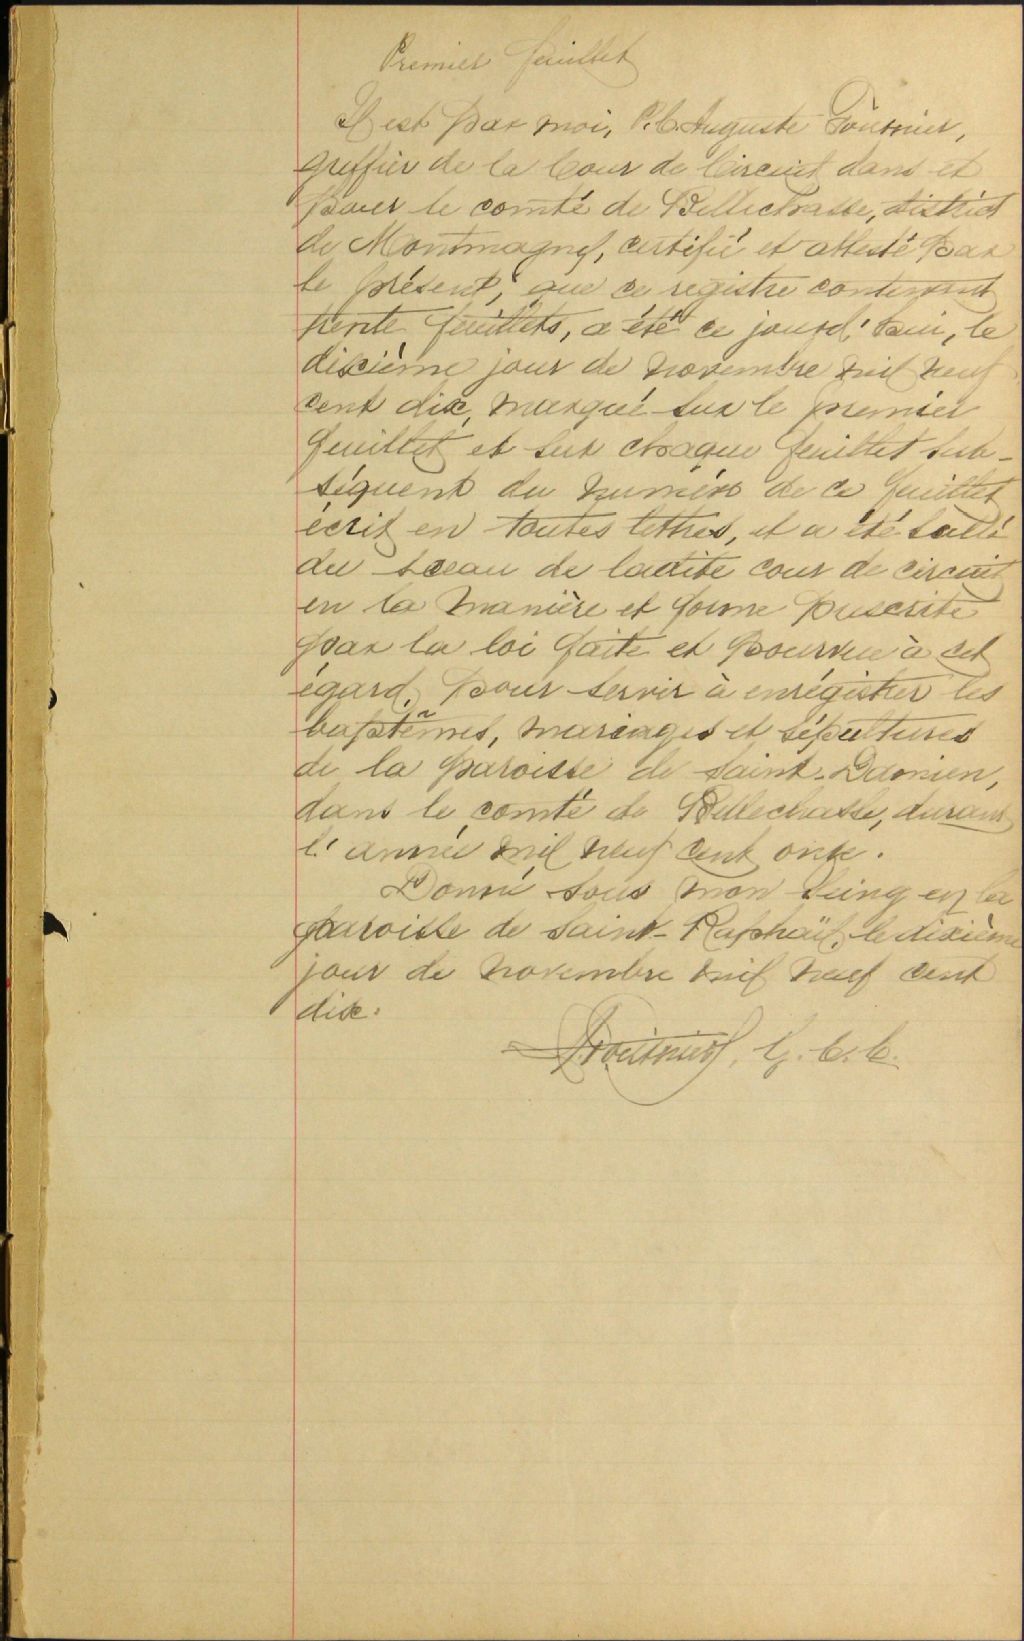 Premier feuillet
Il est par moi, P. C. Auguste Fournier,
greffier de la Cour de Circuit dans et
pour le comté de Bellechasse, district
de Montmagny, certifié et attesté par
le présent, que ce registre contenant
trente feuillets, a été ce jourd'hui, le
dixième jour de novembre mil neuf
cent dix, marqué sur le premier
feuillet et sur chaque feuillet sub-
séquent du numéro de ce feuillet
écrit en toutes lettres, et a été scellé
du sceau de ladite cour de circuit
en la manière et forme prescrite
par la loi faite et pourvue à cet
égard. Pour servir à enrégistrer les
baptêmes, mariages et sépultures
de la paroisse de Saint-Damien,
dans le comté de Bellechasse, durant
l'année mil neuf cent onze.
Donné sous mon seing en la
paroisse de Saint-Raphaël, le dixième
jour de novembre mil neuf cent
dix.
Fournier, G. C. C.